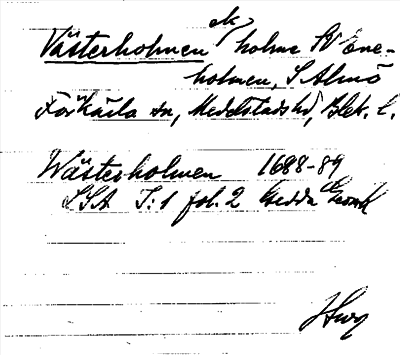 Västerholmen ek, holme SV Ene-
holmen, S Almö
Förkärla sn, Medelstads hd, Blek. l.
Wästerholmen 1688-89
LSA I:1 fol. 2 Gedda Gromk